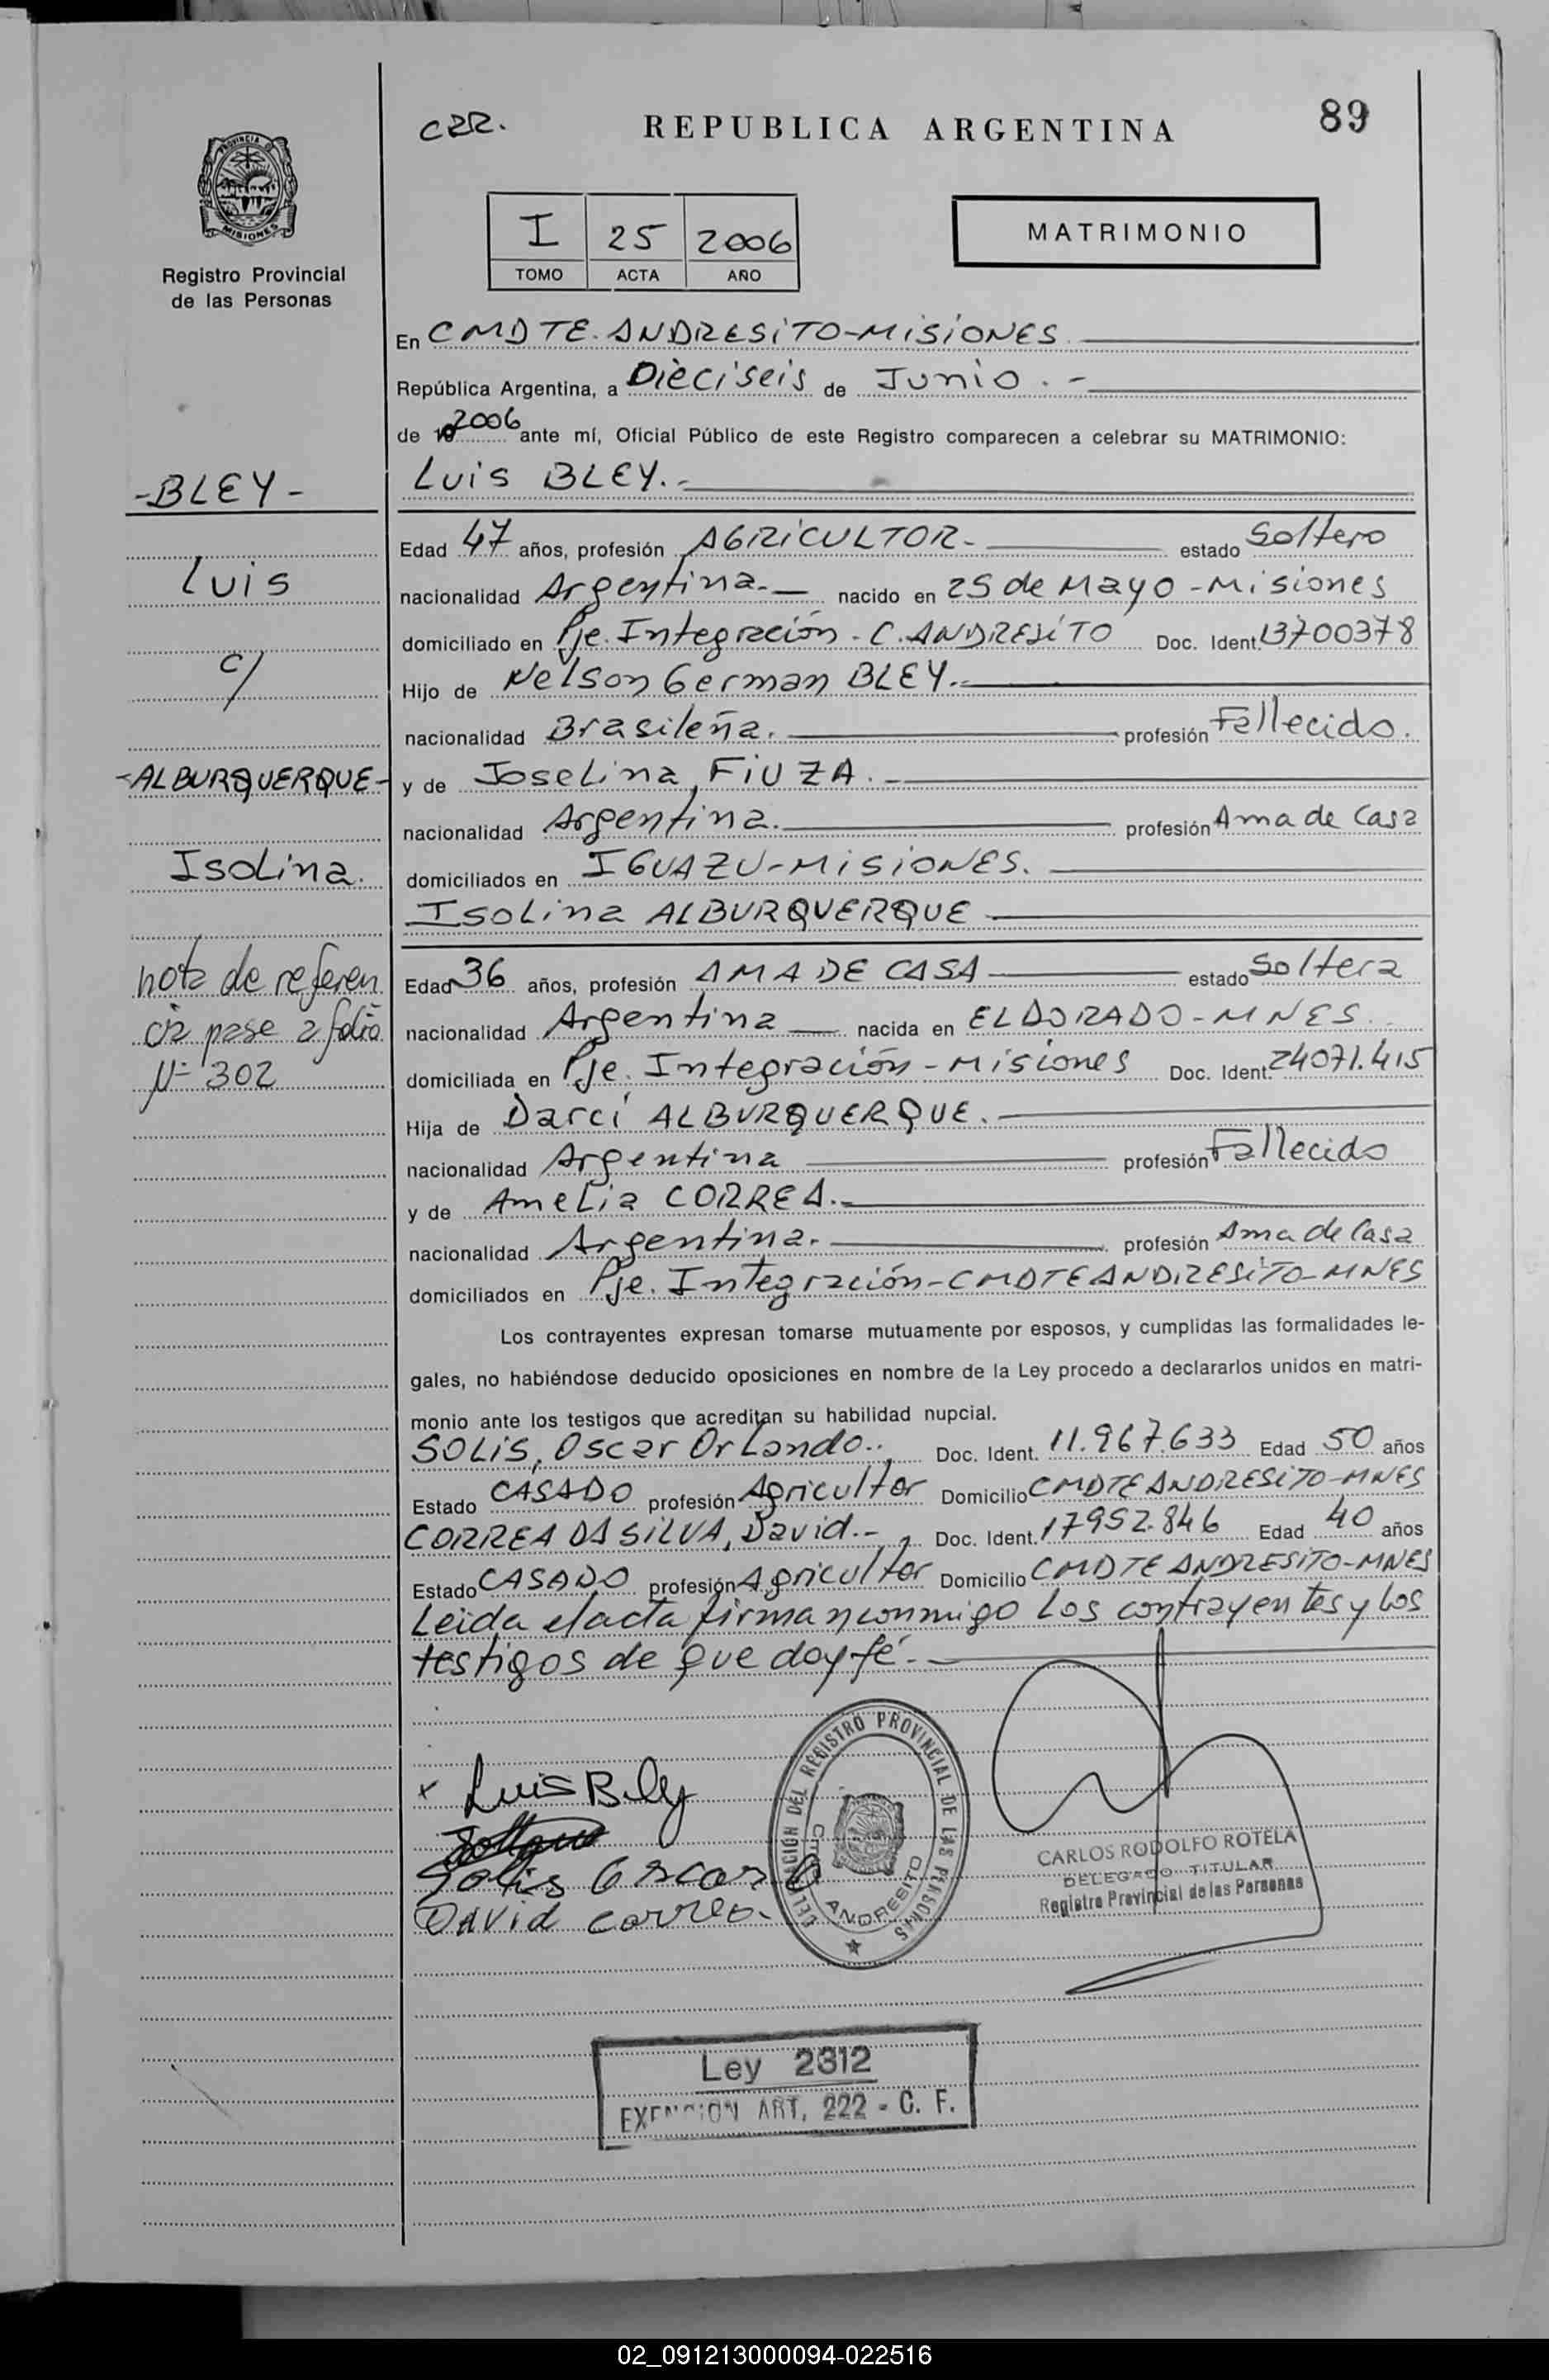 C2R.
REPUBLICA ARGENTINA
89
PROVINCIA DE
MISIONES
Registro Provincial
de las Personas
I 25 2006
TOMO ACTA AÑO
MATRIMONIO
En CMDTE. ANDRESITO-MISIONES
República Argentina, a Dieciseis de Junio.-
de 19 2006 ante mí, Oficial Público de este Registro comparecen a celebrar su MATRIMONIO:
-BLEY-
Luis
c/
-ALBURQUERQUE-
Isolina.
nota de referen
cia pase a folio
Nº 302
Luis BLEY.-
Edad 47 años, profesión AGRICULTOR- estado Soltero
nacionalidad Argentina.- nacido en 25 de Mayo-Misiones
domiciliado en Pje. Integración. C. ANDRESITO Doc. Ident. 13700378
Hijo de Nelson German BLEY.-
nacionalidad Brasileña. profesión Fallecido.
y de Joselina, FIUZA.-
nacionalidad Argentina. profesión Ama de Casa
domiciliados en IGUAZU-MISIONES.
Isolina ALBURQUERQUE
Edad 36 años, profesión AMA DE CASA estado Soltera
nacionalidad Argentina nacida en ELDORADO-MNES.
domiciliada en Pje. Integración-Misiones Doc. Ident. 24071.415
Hija de Darci ALBURQUERQUE.
nacionalidad Argentina profesión Fallecido
y de Amelia CORREA.-
nacionalidad Argentina. profesión Ama de Casa
domiciliados en Pje. Integración-CMDTE ANDRESITO-MNES
Los contrayentes expresan tomarse mutuamente por esposos, y cumplidas las formalidades le-
gales, no habiéndose deducido oposiciones en nombre de la Ley procedo a declararlos unidos en matri-
monio ante los testigos que acreditan su habilidad nupcial.
SOLIS, Oscar Orlando.. Doc. Ident. 11.967.633 Edad 50 años
Estado CASADO profesión Agricultor Domicilio CMDTE ANDRESITO-MNES
CORREA DA SILVA, David.- Doc. Ident. 17952.846 Edad 40 años
Estado CASADO profesión Agricultor Domicilio CMDTE ANDRESITO-MNES
Leida el acta firman conmigo los contrayentes y los
testigos de que doy fé.-
x Luis Bley
Solis Oscar O
David Correa.
DELEGACIÓN DEL REGISTRO PROVINCIAL DE LAS PERSONAS
CMDTE ANDRESITO
CARLOS RODOLFO ROTELA
DELEGADO TITULAR
Registro Provincial de las Personas
Ley 2312
EXENCION ART. 222 - C. F.
02_091213000094-022516